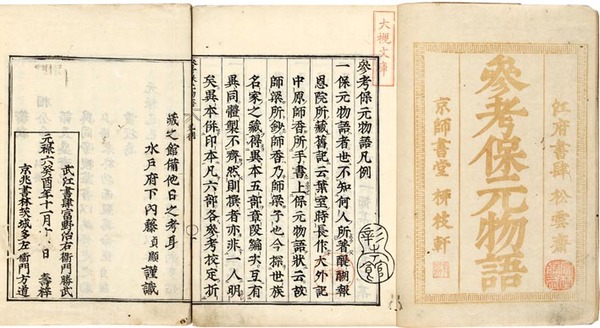 江府書肆 松雲齋
參考保元物語
京師書堂 柳枝軒
大槻文庫
參考保元物語凡例
彰考館
一保元物語者世不知何人所著醍醐報
恩院所藏舊記云葉室時長作大外記
中原師香所手書上保元物語狀云故
師梁所鈔師香乃師梁子也今探世族
名家之藏得異本五部章段編次互有
異同體製不齊然則撰者亦非一人明
矣異本俱印本凡六部各參考校定折
藏之館備他日之考耳
水戶府下內藤貞顯謹識
武江書肆富野治右衞門勝武
元祿六癸酉年十一月 日 壽梓
京兆書林茨城多左衞門方道